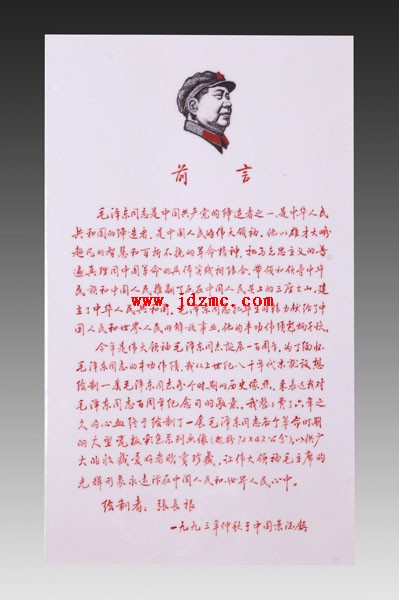 前言
毛泽东同志是中国共产党的缔造者之一,是中华人民
共和国的缔造者,是中国人民的伟大领袖。他以雄才大略
超凡的智慧和百折不挠的革命精神,把马克思主义的普
遍真理同中国革命的具体实践相结合,带领和领导中华
民族和中国人民推翻了压在中国人民头上的三座大山,建
立了中华人民共和国。毛泽东同志把毕生的精力献给了中
www.jdzmc.com
国人民和世界人民的解放事业,他的丰功伟绩彪炳千秋。
今年是伟大领袖毛泽东同志诞辰一百周年,为了缅怀
毛泽东同志的丰功伟绩,我从上世纪八十年代末就设想
绘制一展毛泽东同志各个时期的历史像,来表达我对
毛泽东同志百周年纪念日的敬意。我花费了六年之
久的心血终于绘制了一展毛泽东同志各个革命时期
的大型瓷板彩色系列画像(规格72×42公分),以供广
大的收藏爱好者赠赏珍藏,让伟大领袖毛主席的
光辉形象永远活在中国人民和世界人民心中。
绘制者:张长根
一九九三年仲秋于中国景德镇